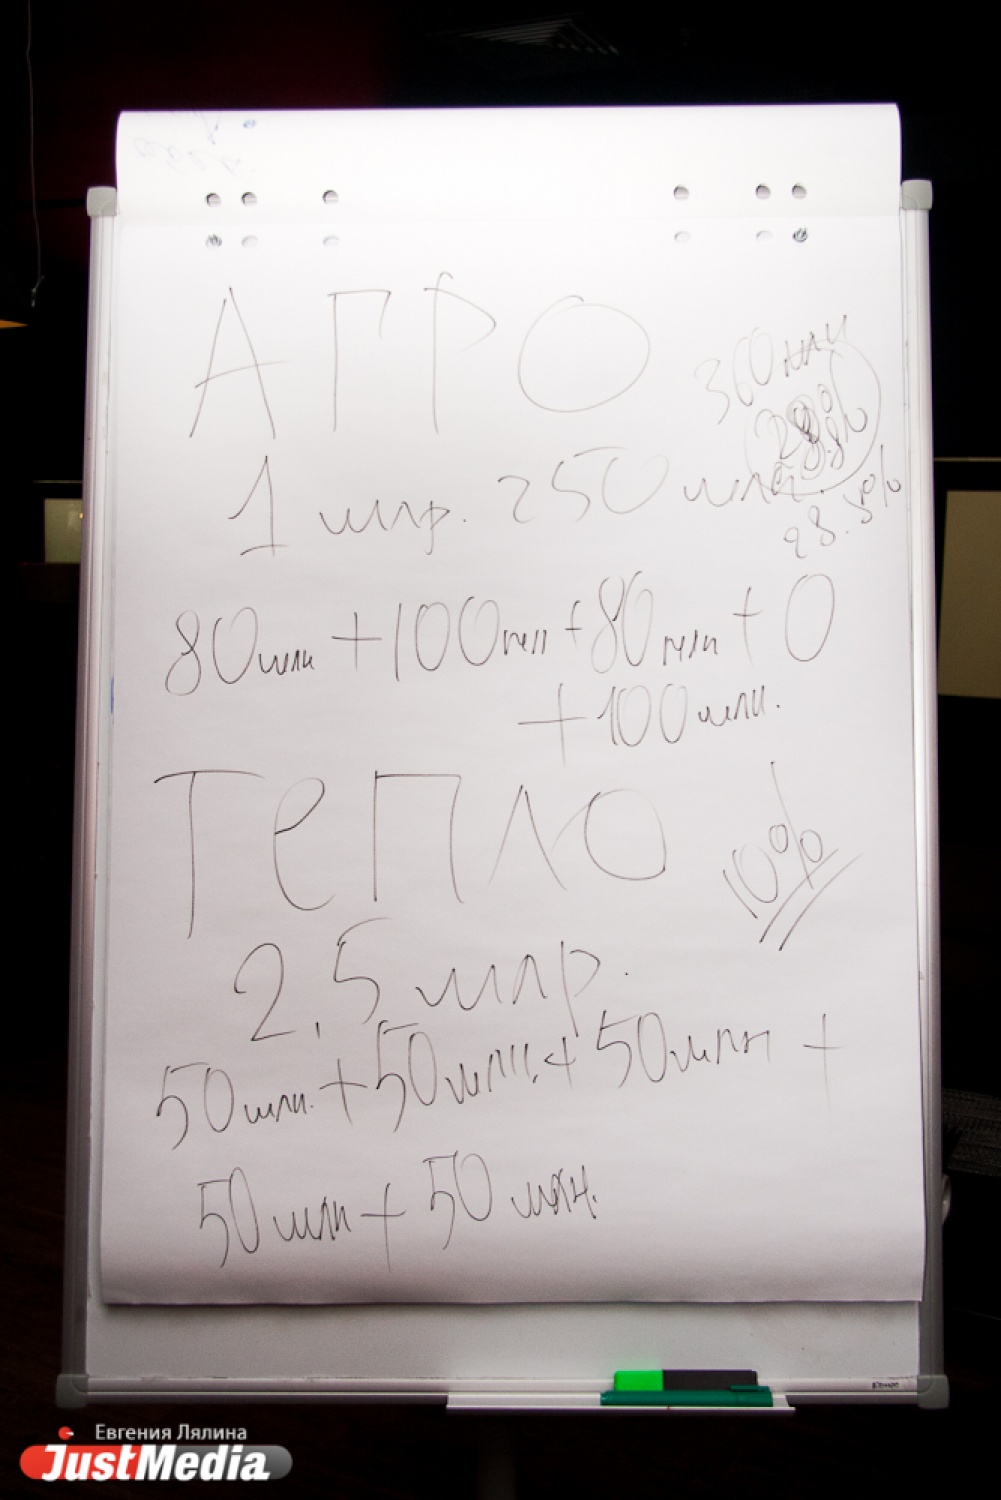 АГРО
360 млн
28.8%
1 млр. 250 млн.
28.8%
80млн + 100млн + 80млн + 0
+ 100млн.
ТеПЛО
10%
2,5 млр.
50млн. + 50млн. + 50млн +
50млн + 50 млн.
Евгения Лялина
JustMedia